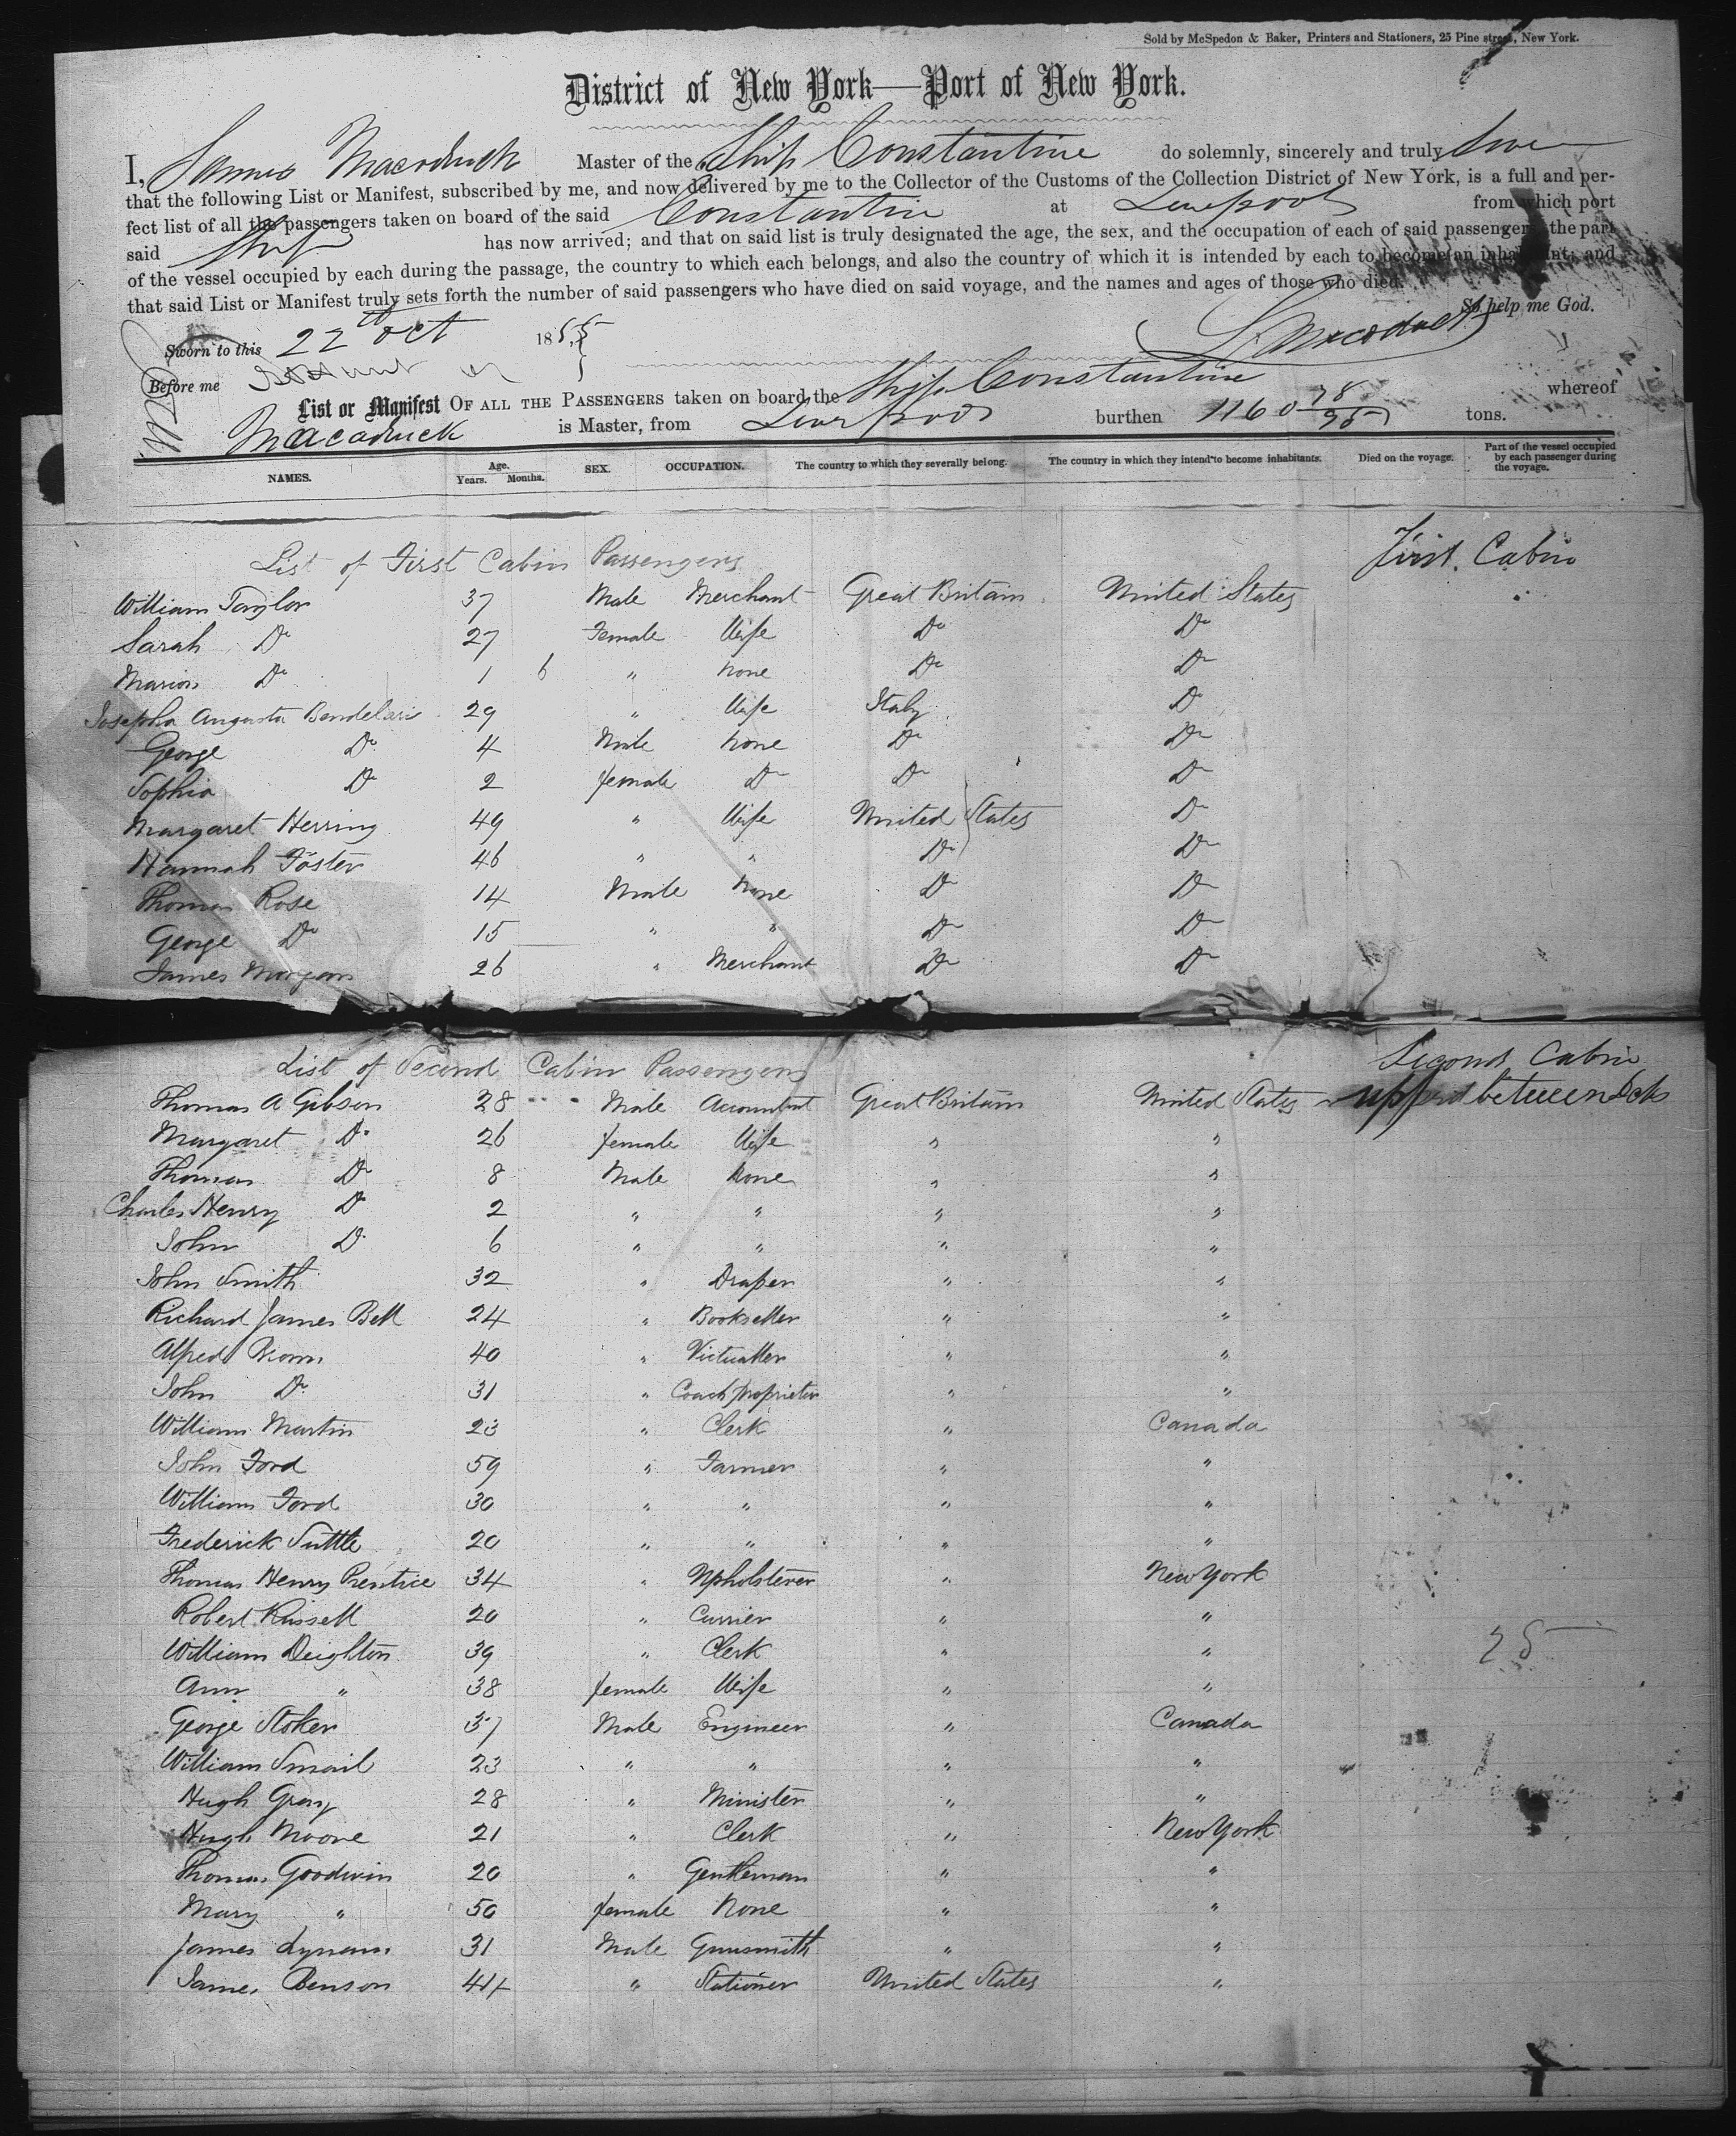 Sold by McSpedon & Baker, Printers and Stationers, 25 Pine street, New York.
District of New York—Port of New York.
I, James Macoduck Master of the Ship Constantine do solemnly, sincerely and truly
that the following List or Manifest, subscribed by me, and now delivered by me to the Collector of the Customs of the Collection District of New York, is a full and per-
fect list of all the passengers taken on board of the said Constantine at Liverpool from which port
said Ship has now arrived; and that on said list is truly designated the age, the sex, and the occupation of each of said passengers, the part
of the vessel occupied by each during the passage, the country to which each belongs, and also the country of which it is intended by each to become an inhabitant; and
that said List or Manifest truly sets forth the number of said passengers who have died on said voyage, and the names and ages of those who died.
So help me God.
Sworn to this 22th Oct 1855
Before me
List or Manifest OF ALL THE PASSENGERS taken on board the Ship Constantine whereof
Macaduck is Master, from Liverpool burthen 1160 78/95 tons.
NAMES. Age. Years. Months. SEX. OCCUPATION. The country to which they severally belong. The country in which they intend to become inhabitants. Died on the voyage. Part of the vessel occupied by each passenger during the voyage.
List of First Cabin Passengers First Cabin
William Taylor 37 Male Merchant Great Britain United States
Sarah Do 27 Female Wife Do Do
Marion Do 1 6 " None Do Do
Josepha Augusta Bendelari 29 " Wife Italy Do
George Do 4 Male None Do Do
Sophia Do 2 female Do Do Do
Margaret Herring 49 " Wife United States Do
Hannah Foster 46 " " Do Do
Thomas Rose 14 Male None Do Do
George Do 15 " " Do Do
James Morgan 26 " Merchant Do Do
List of Second Cabin Passengers Second Cabin
Thomas A Gibson 28 Male Accountant Great Britain United States upper between decks
Margaret Do 26 female Wife " "
Thomas Do 8 Male None " "
Charles Henry Do 2 " " " "
John Do 6 " " " "
John Smith 32 " Draper " "
Richard James Bell 24 " Bookseller " "
Alfred Brown 40 " Victualler " "
John Do 31 " Coach proprietor " "
William Martin 23 " Clerk " Canada
John Ford 59 " Farmer " "
William Ford 30 " " " "
Frederick Suttle 20 " " " "
Thomas Henry Prentice 34 " Upholsterer " New York
Robert Russell 20 " Currier " "
William Deighton 39 " Clerk " " 25
Ann " 38 female Wife " "
George Stoker 37 Male Engineer " Canada
William Smail 23 " " " "
Hugh Gray 28 " Minister " "
Hugh Moore 21 " Clerk " New York
Thomas Goodwin 20 " Gentleman " "
Mary " 50 female None " "
James Lynam 31 Male Gunsmith " "
James Benson 44 " Stationer United States "